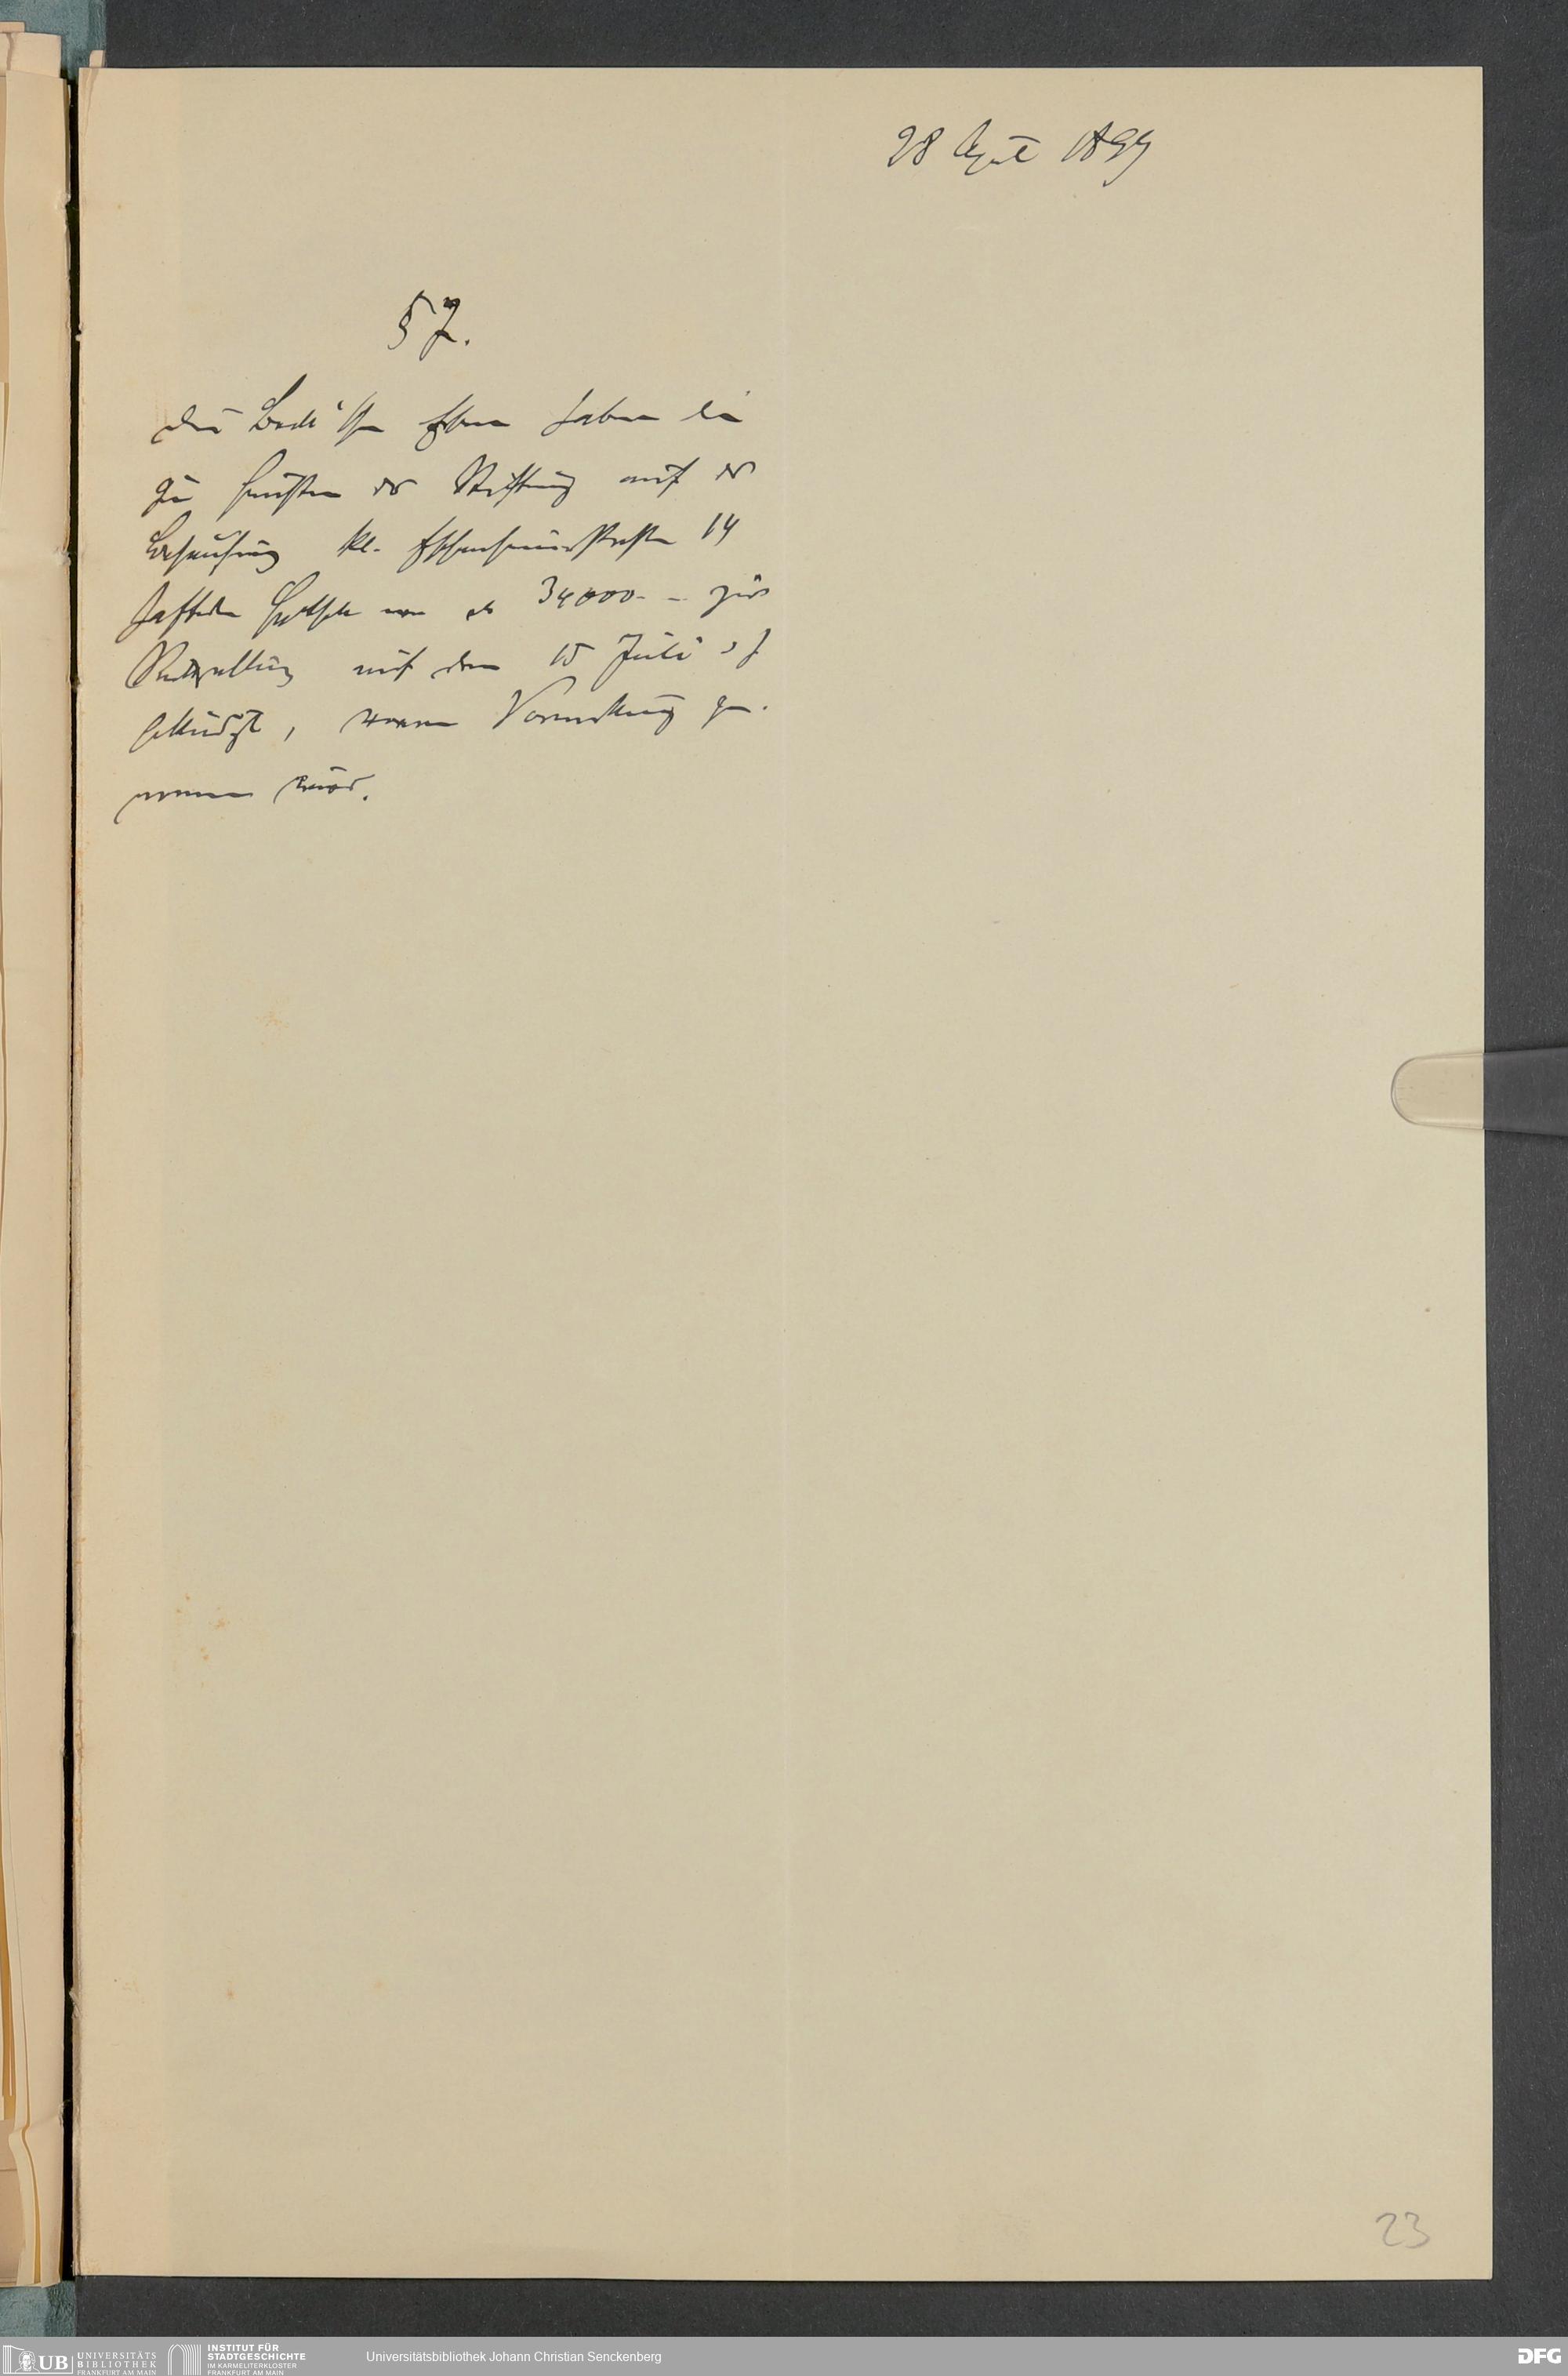 28 April 1899
§ 7.
Die Bock'schen Erben haben die
zu Gunsten der Stiftung auf der
Behausung kl. Eschenheimerstraße 14
haftende Hypothek von 34000.- zur
Rückzahlung auf den 15 Juli
gekündigt, wovon Vormerkung ge-
nommen wird.
23
UB UNIVERSITÄTS
BIBLIOTHEK
FRANKFURT AM MAIN
INSTITUT FÜR
STADTGESCHICHTE
IM KARMELITERKLOSTER
FRANKFURT AM MAIN
Universitätsbibliothek Johann Christian Senckenberg
DFG